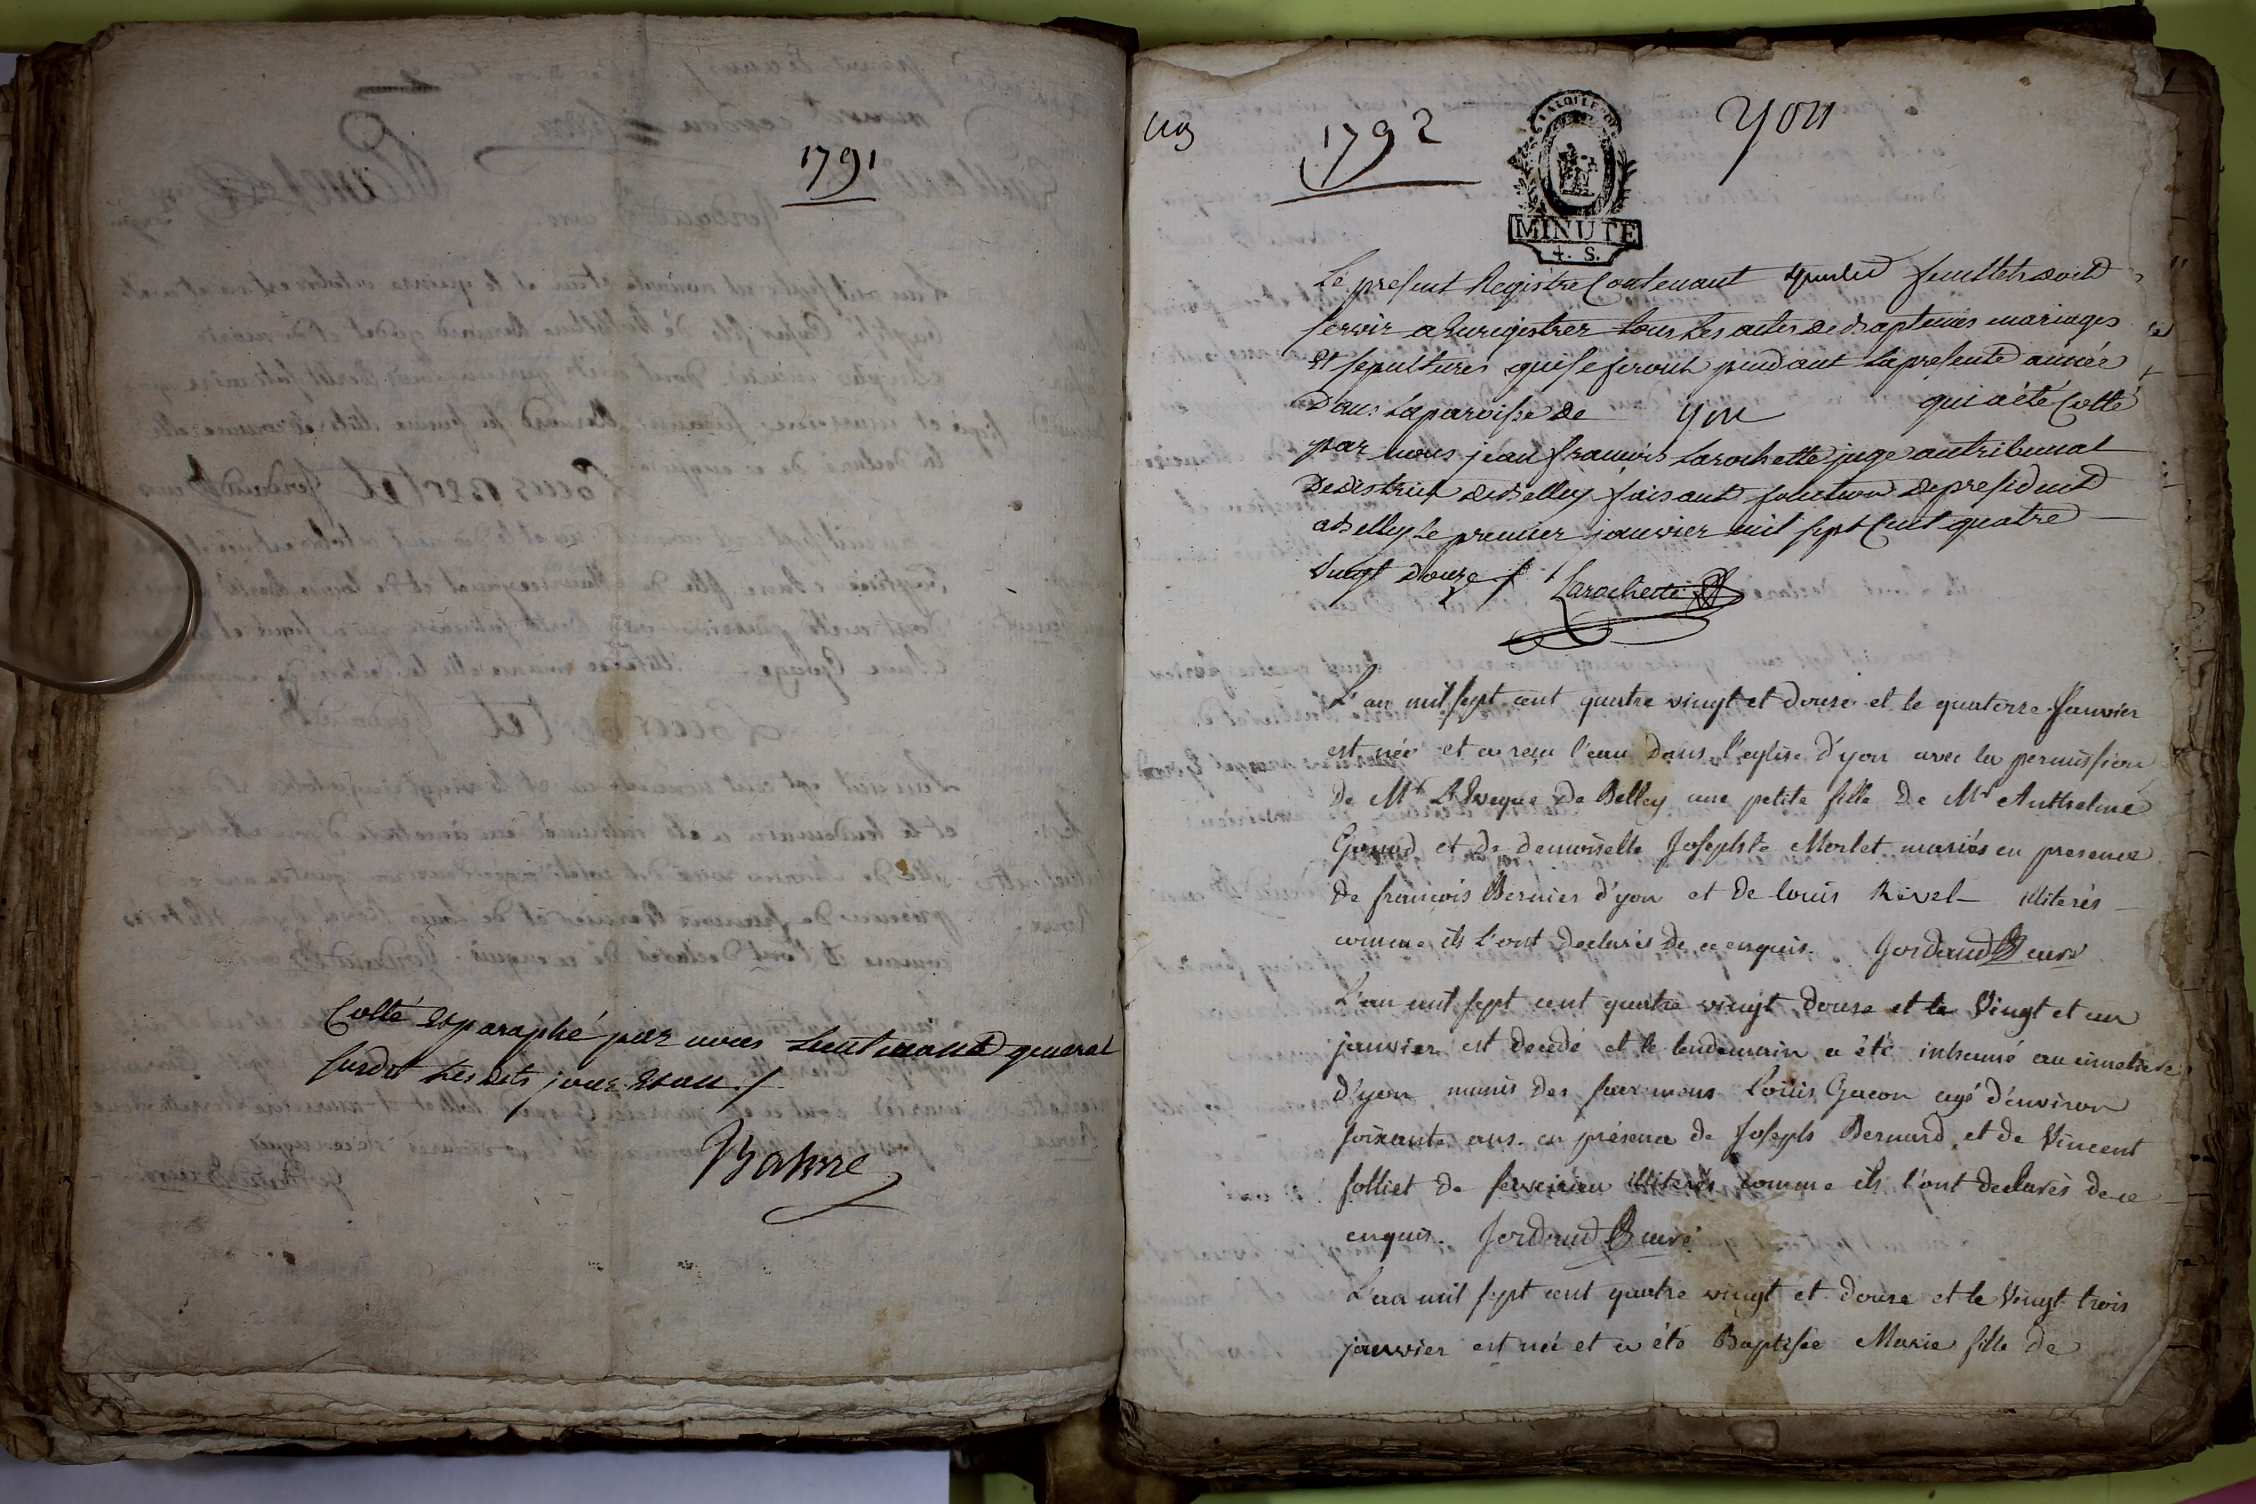 1791
Cotté et paraphé par nous Lieutenant general
susdit Les dits jour et an ./.
Balme
1792
Yon
MINUTE
4. S.
Le present Registre Contenant feuillets doit
servir a Enregistrer tous Les actes de Baptemes mariages
Et sepultures qui se feront pendant La presente année
Dans La paroisse de Yon qui a été Cotté
par nous jean françois Larochette juge au tribunal
De district de Belley faisant fonction de president
a Belley Le premier janvier mil sept Cent quatre
vingt douze ./. Larochette
L'an mil sept cent quatre vingt et douse et le quatorse Janvier
est née et a reçu l'eau Dans l'eglise d'yon avec la permission
De Mr L'Eveque De Belley une petite fille De Mr Anthelme
et De demoiselle Josephte Merlet mariés en presence
De françois Bernier d'yon et De louis Revel illiterés
comme ils l'ont declarés De ce enquis. Jordaud curé
L'an mil sept cent quatre vingt douse et le Vingt et un
janvier est decedé et le lendemain a été inhumé au cimetiere
d'yon munis des sacremens Loüis Gacon agé d'environ
soixante ans en présence de Joseph Bernard et de Vincent
folliet De illiterés comme ils l'ont declarés de ce
enquis. Jordaud curé
L'an mil sept cent quatre vingt et douse et le Vingt trois
janvier est née et a été Baptisée Marie fille De